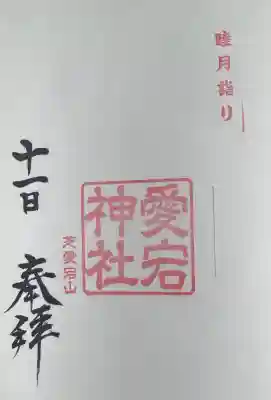 睦月詣り
愛宕
神社
芝愛宕山
十一日
奉拝